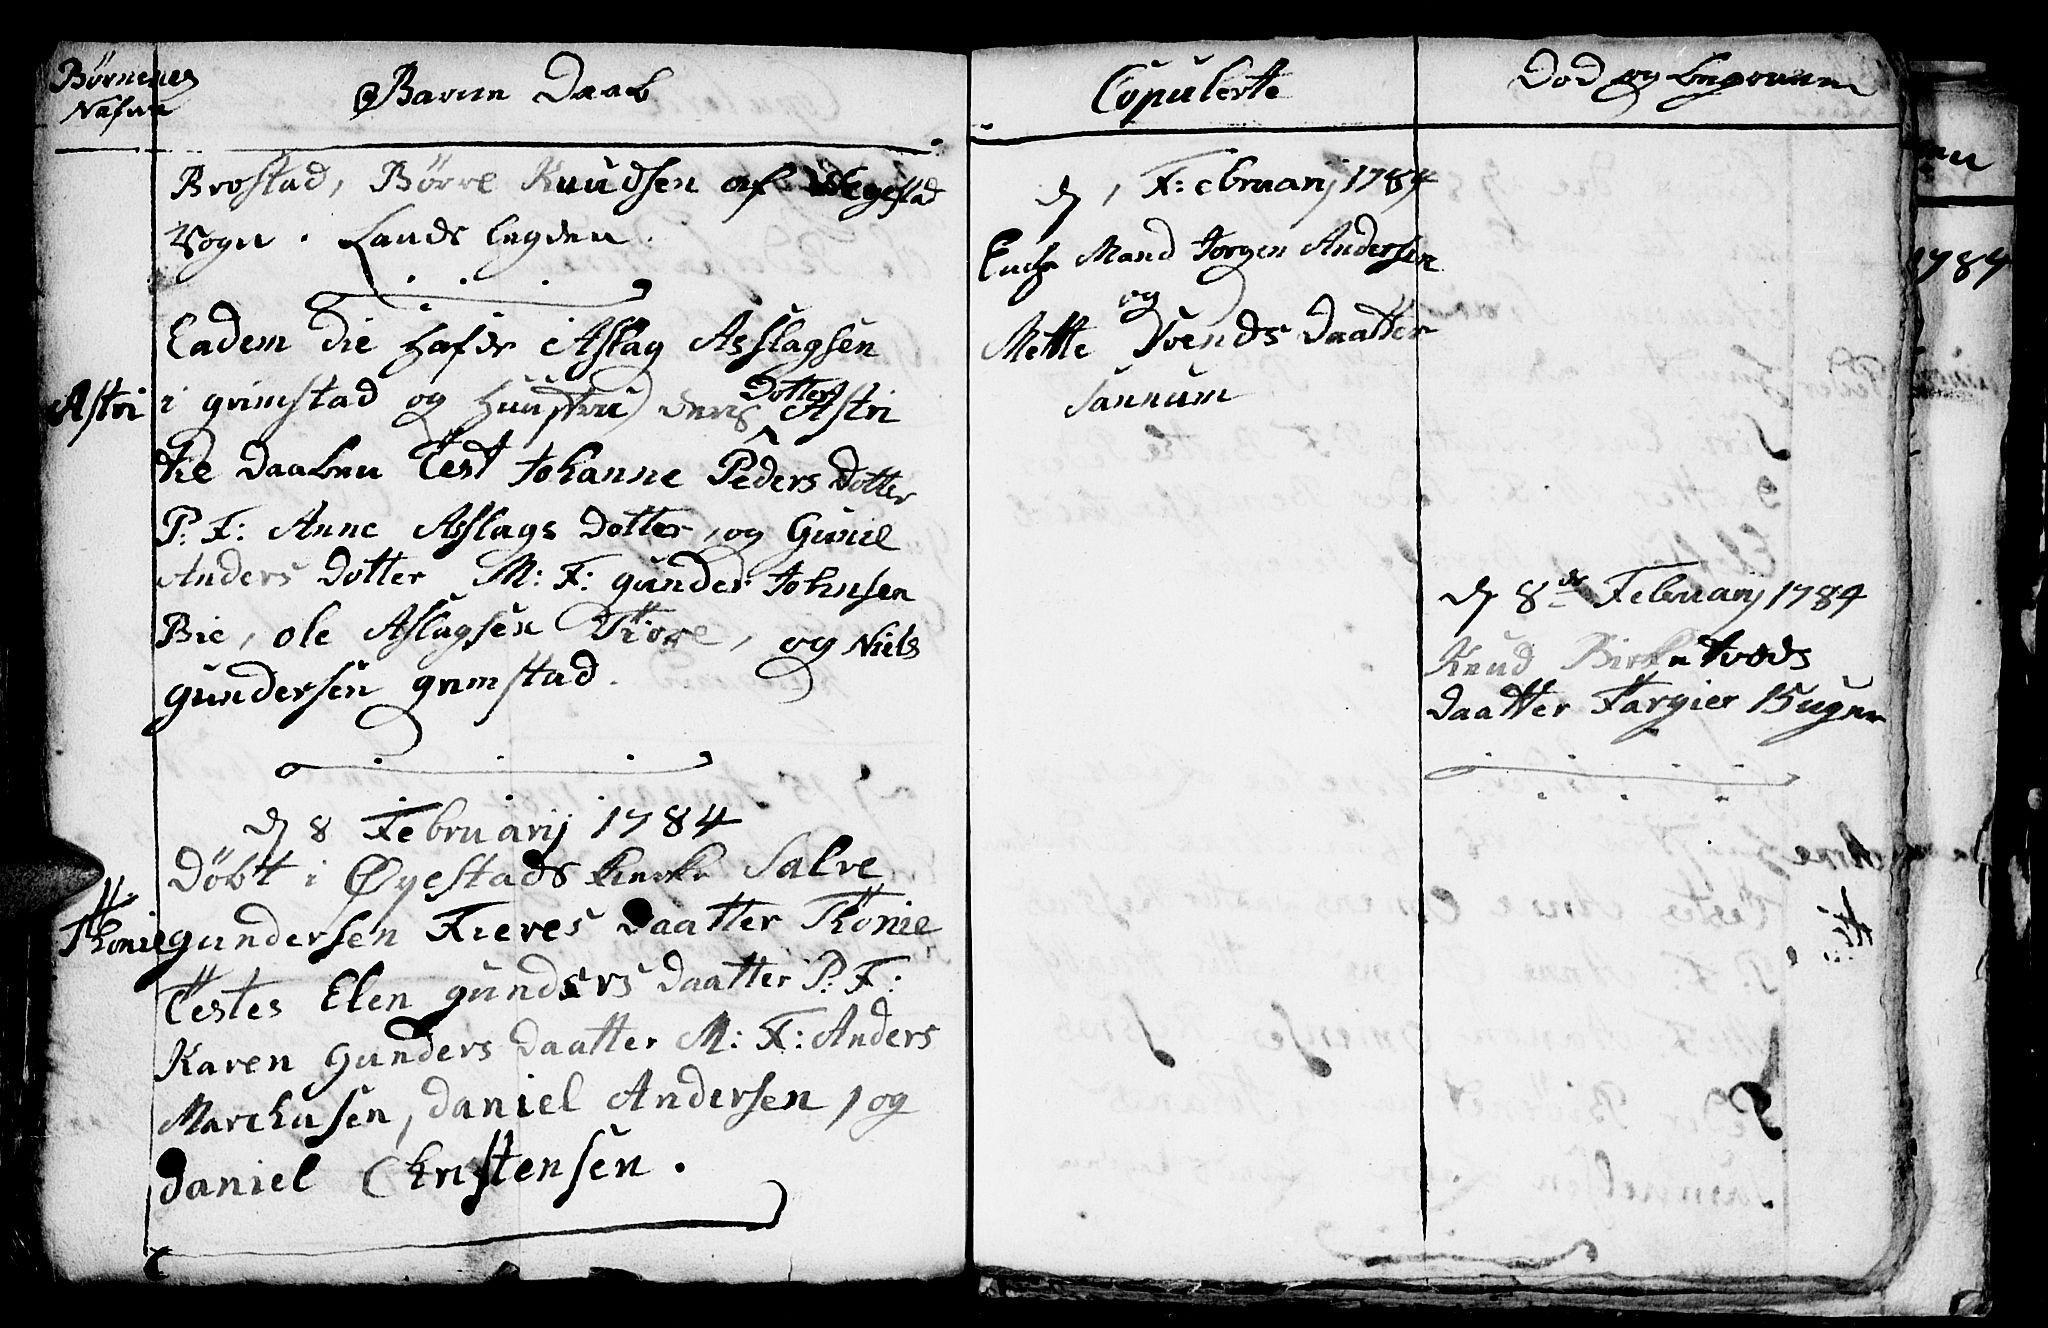 Børnenes
Nafne
Barne Daab
Brostad, Børre Knudsen af Wegestad
Sogn. Lands Legden.
Eadem die hafde Aslag Asslagsen
Astri
i grimstad og Huustru deris Dotter Astri
tie daaben Test Johanne Peders Dotter
P: F: Anne Asslags Dotter, og Gunil
Anders Dotter M: F: gunder Johnsen
Bie, ole Aslagsen Tiore, og Niels
gundersen grimstad.
d 8 Februarij 1784
Døbt i Øyestads Kirke Salve
Thonie
gundersen Fieres Daatter Thonie
Testes Elen gunders Daatter P: F:
Karen Gunders daatter M: F: Anders
Marchusen, daniel Andersen, og
daniel Christensen.
Copulerte
d 1 F:ebruarij 1784
Enche Mand Jorgen Andersen
og
Mette Svends Daatter
Sannum
Dod og begraven
d 8de Februarij 1784
Knud Birketveds
daatter Targier 15 uger
1784